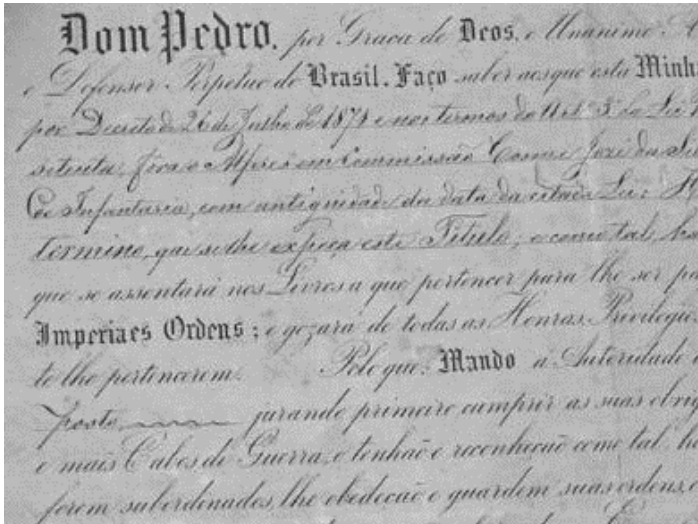 Dom Pedro, por Graca de Deos, e Unanime A
e Defensor Perpetuo do Brasil. Faço saber aos que esta Minha
por Decreto de 26 de Julho de 1871 e nos termos do Art 3º da Lei
setenta, fora o Alferes em Commissão José da
de Infantaria, com antiguidade da data da citada Lei:
termino, que se lhe expeça este Titulo; e como tal,
que se assentará nos Livros a que pertencer para lhe ser pa
Imperiaes Ordens; e gozará de todas as Honras, Privilegio
te lhe pertencerem. Pelo que: Mando á Autoridade
posto jurando primeiro cumprir as suas obrig
e mais Cabos de Guerra, o tenhão e reconheção como tal,
forem subordinados, lhe obedeção e guardem suas ordens,